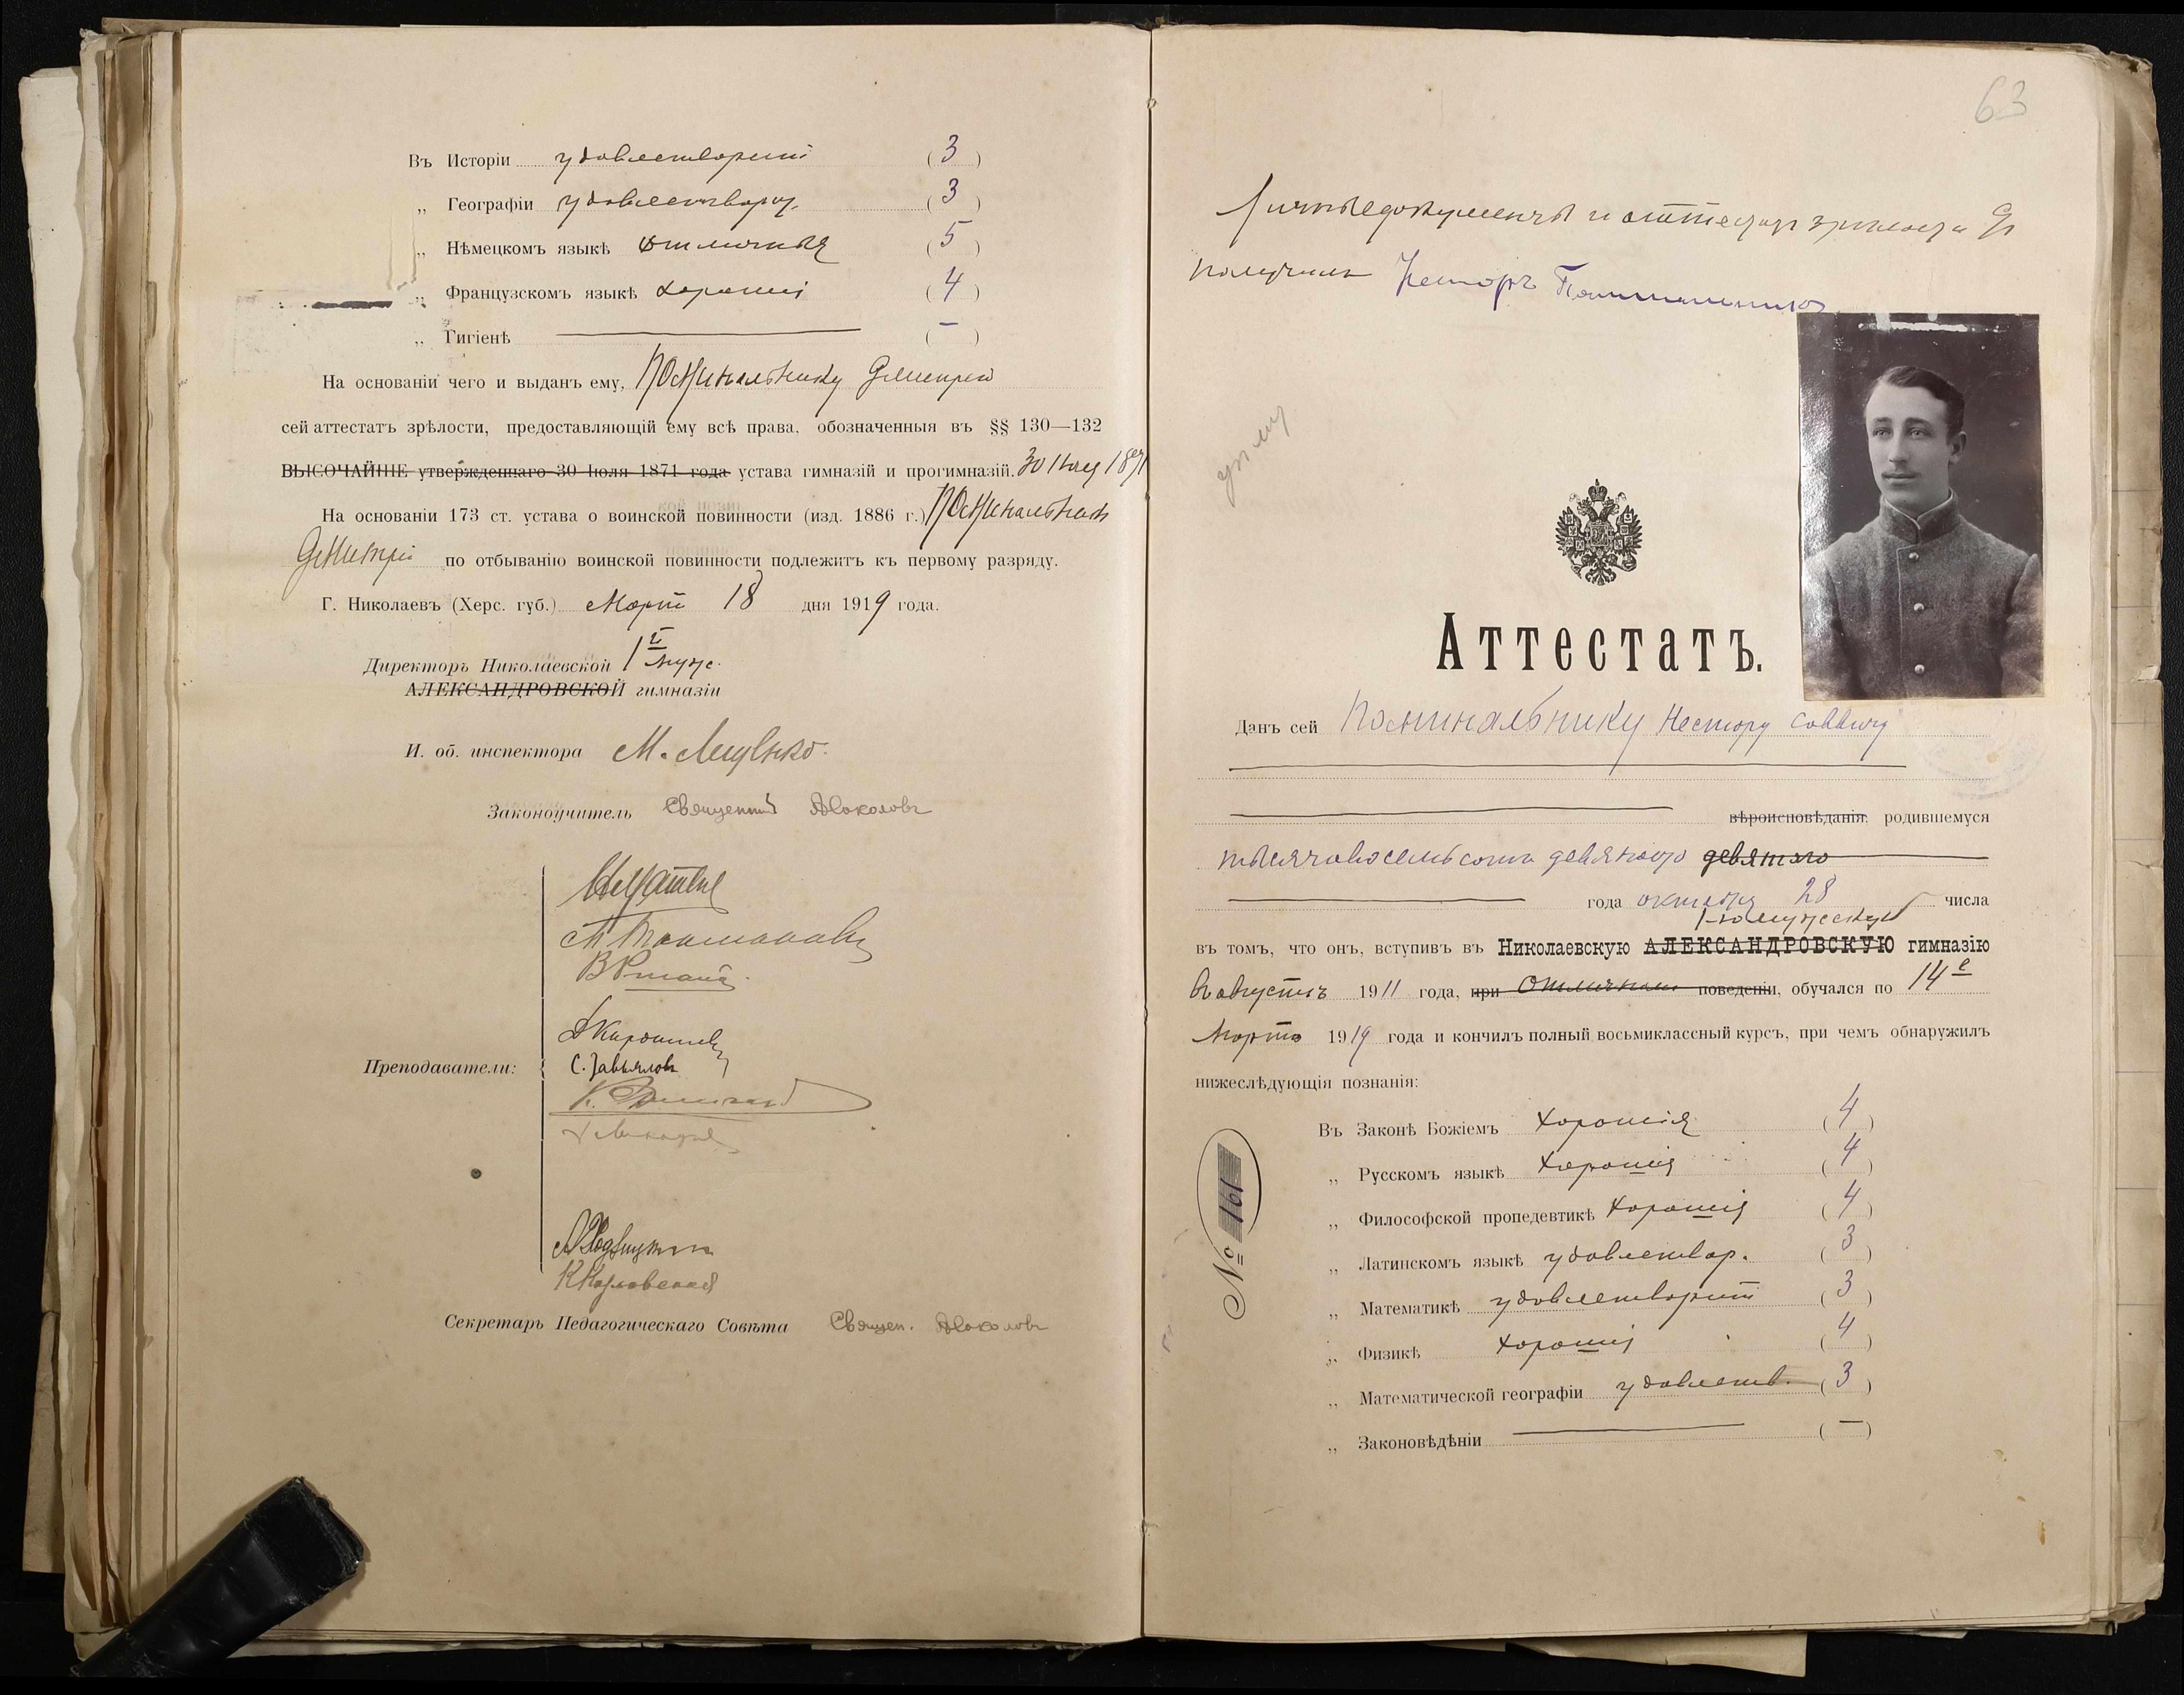 Въ Исторіи удовлетворит (3)
„ Географіи удовлетвор. (3)
„ Нѣмецкомъ языкѣ отличныя (5)
„ Французскомъ языкѣ хорошія (4)
„ Гигіенѣ (—)
На основаніи чего и выданъ ему, Поминальнику Дмитрію
сей аттестатъ зрѣлости, предоставляющій ему всѣ права, обозначенныя въ §§ 130—132
ВЫСОЧАЙШЕ утвержденнаго 30 Іюля 1871 года устава гимназій и прогимназій. 30 Іюля 1871
На основаніи 173 ст. устава о воинской повинности (изд. 1886 г.) Поминальникъ
Дмитрій по отбыванію воинской повинности подлежитъ къ первому разряду.
Г. Николаевъ (Херс. губ.) Март 18 дня 1919 года.
Директоръ Николаевской 1й муж.
АЛЕКСАНДРОВСКОЙ гимназіи
И. об. инспектора М.
Законоучитель Священникъ Соколовъ
Преподаватели:
С. Завьялов
Секретарь Педагогическаго Совѣта Священ. Соколовъ
63
Личные документы и аттестат зрелости
получилъ Несторъ Поминальникъ
Аттестатъ.
Данъ сей Поминальнику Нестору Саввичу
вѣроисповѣданія, родившемуся
тысяча восемьсотъ девяносто девятого
года октября 28 числа
1-ю мужскую
въ томъ, что онъ, вступивъ въ Николаевскую АЛЕКСАНДРОВСКУЮ гимназію
въ августѣ 1911 года, при отличномъ поведеніи, обучался по 14е
Марта 1919 года и кончилъ полный восьмиклассный курсъ, при чемъ обнаружилъ
нижеслѣдующія познанія:
Въ Законѣ Божіемъ хорошія (4)
„ Русскомъ языкѣ хорошія (4)
„ Философской пропедевтикѣ хорошія (4)
„ Латинскомъ языкѣ удовлетвор. (3)
„ Математикѣ удовлетворит (3)
„ Физикѣ хорошія (4)
„ Математической географіи удовлетв. (3)
„ Законовѣдѣніи (—)
№ 161